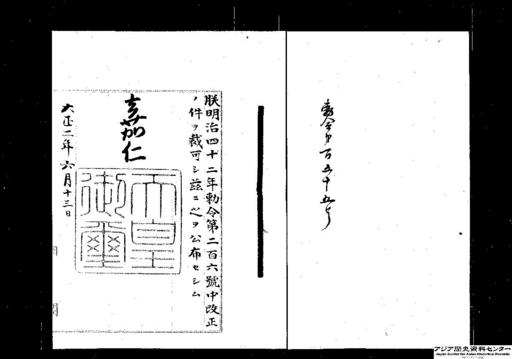 勅令第百五十五号
朕明治四十二年勅令第二百六號中改正
ノ件ヲ裁可シ茲ニ之ヲ公布セシム
嘉仁
天皇
御璽
大正二年六月十三日
アジア歴史資料センター
Japan Center for Asian Historical Records